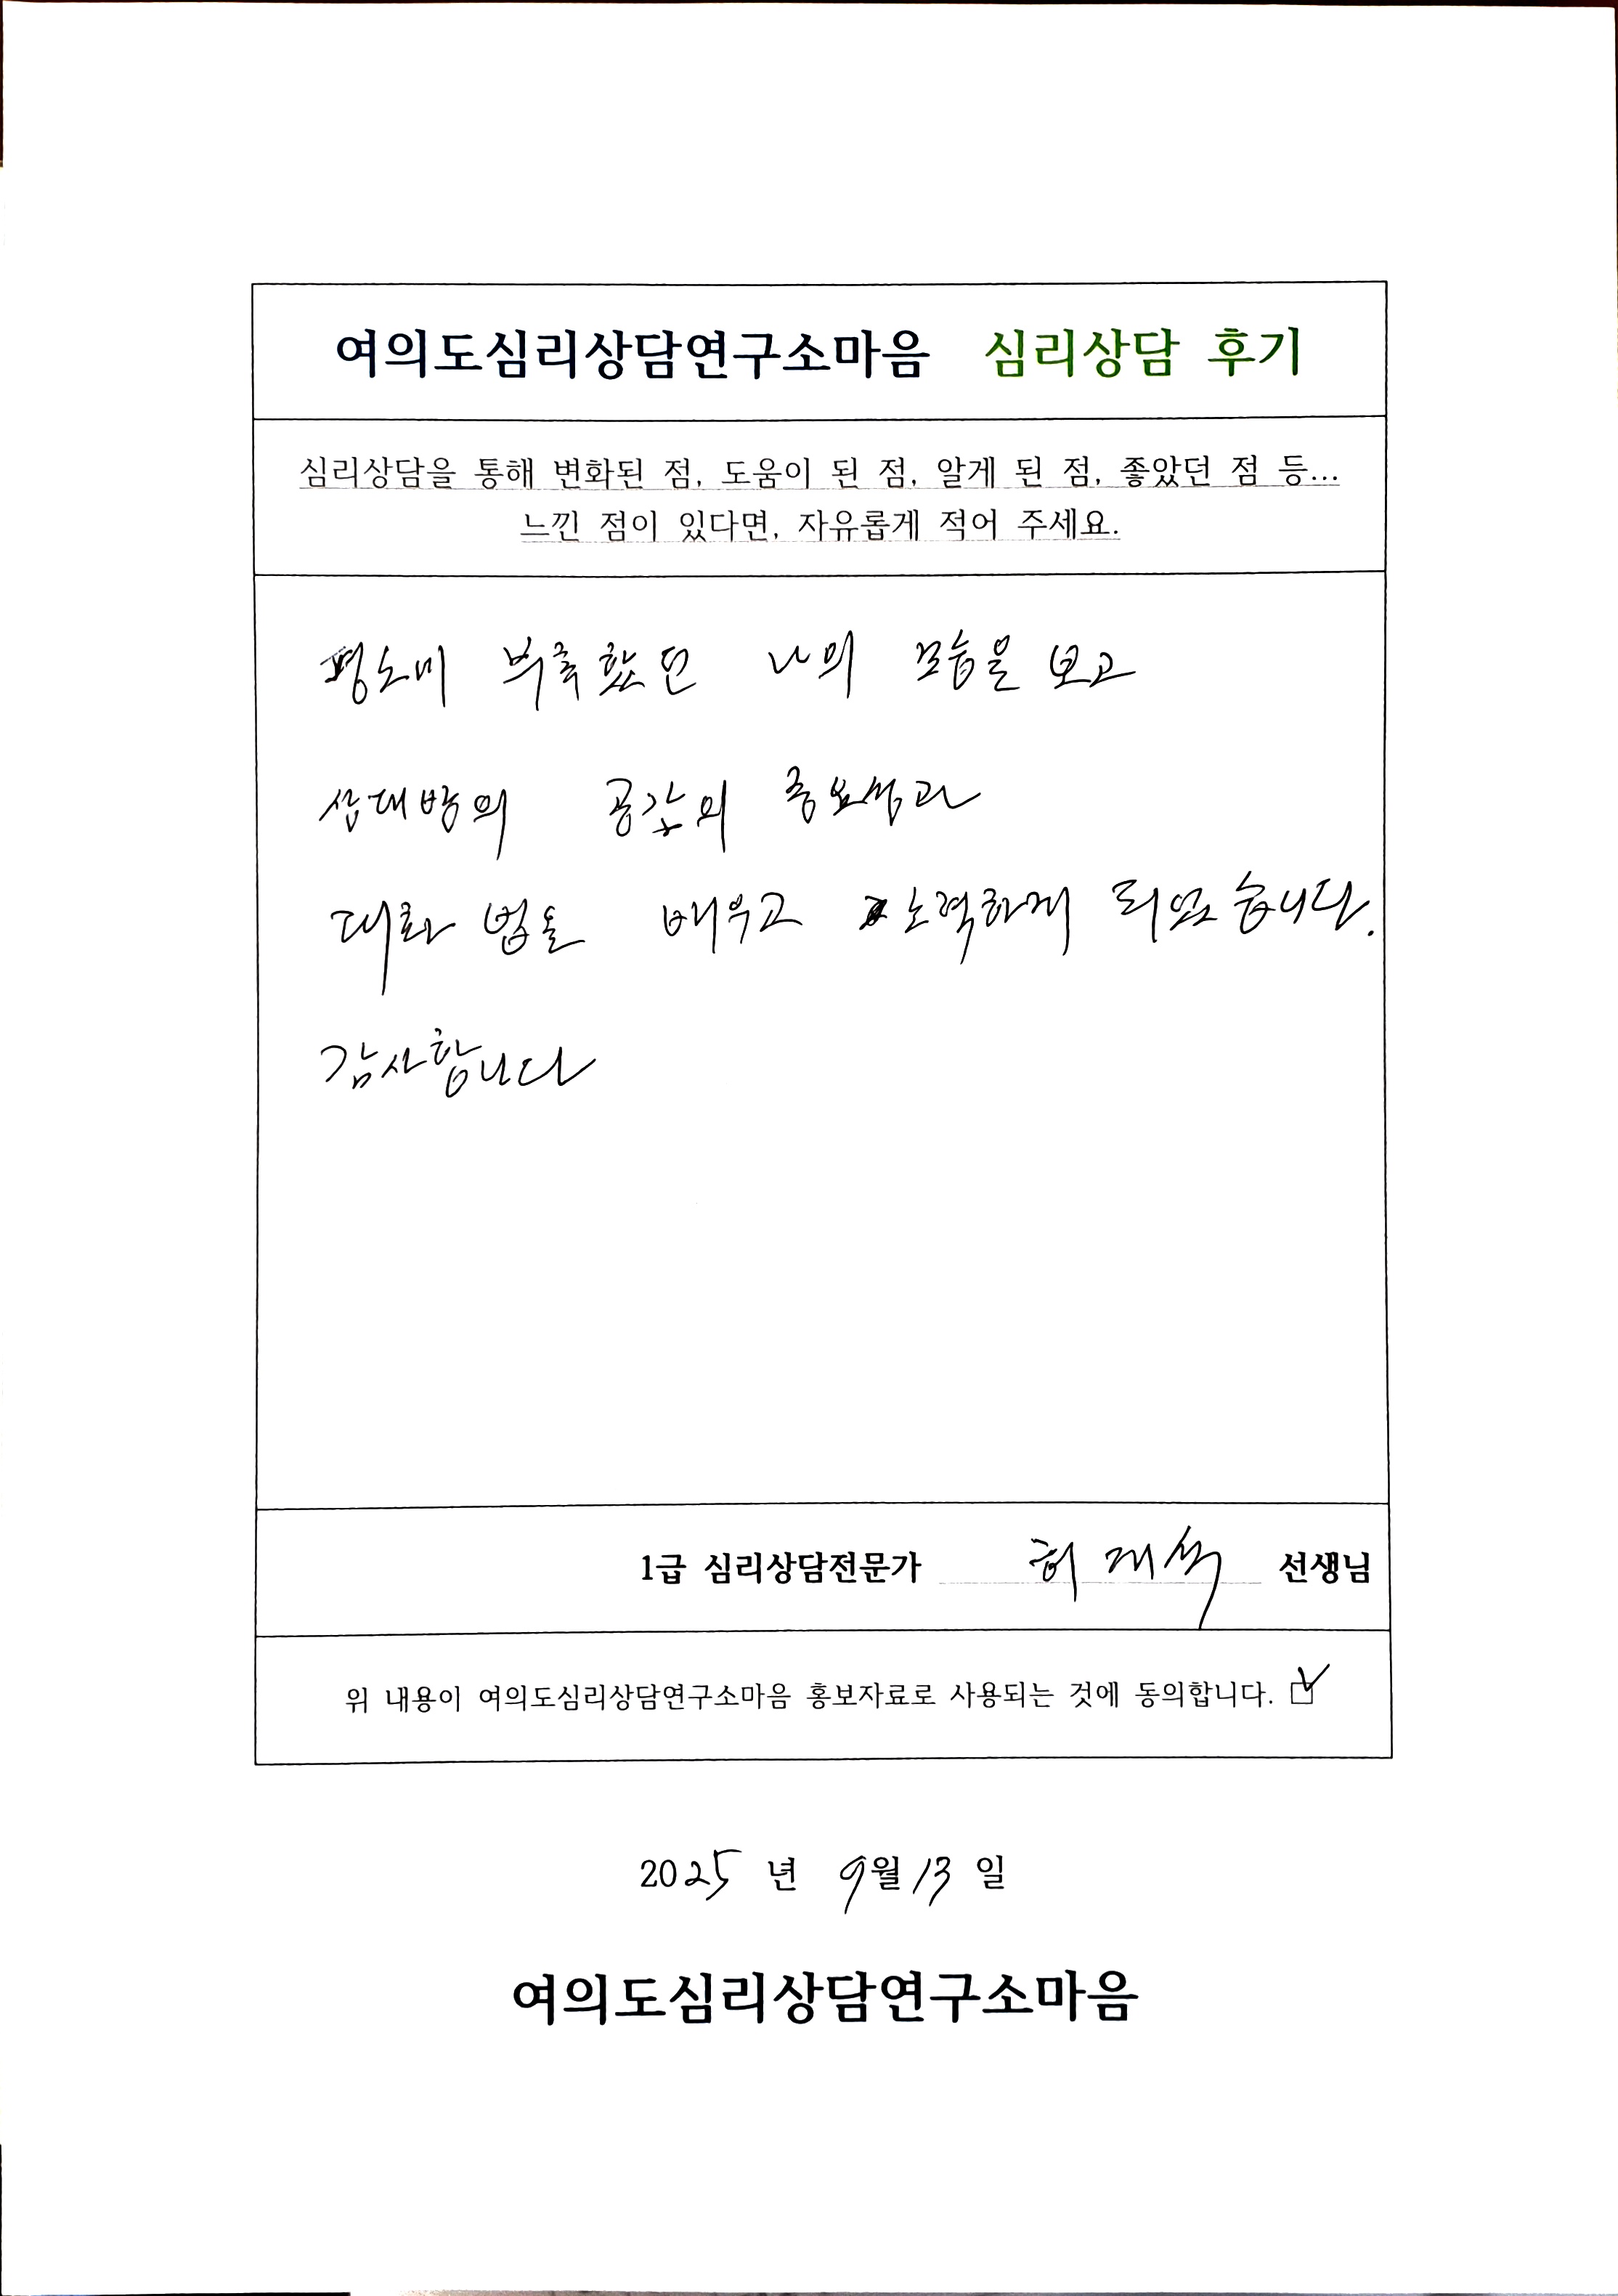 여의도심리상담연구소마음 심리상담 후기
심리상담을 통해 변화된 점, 도움이 된 점, 알게 된 점, 좋았던 점 등...
느낀 점이 있다면, 자유롭게 적어 주세요.
평소에 부족했던 나의 모습을 보고
상대방의 공감의 중요성과
대화 법을 배우고 노력하게 되었습니다.
감사합니다
1급 심리상담전문가 허재석 선생님
위 내용이 여의도심리상담연구소마음 홍보자료로 사용되는 것에 동의합니다.
2025 년 9월 13 일
여의도심리상담연구소마음